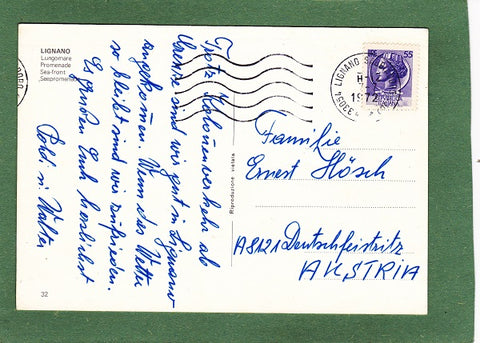 LIGNANO
Lungomare
Promenade
Sea-front
Seepromenade
Trotz Kolonnenverkehr ab
sind wir gut in Lignano
angekommen. Wenn das Wetter
so bleibt sind wir zufrieden.
Es grüßen Euch herzlichst
Poldi u. Walter
32
Riproduzione vietata
55
33054 LIGNANO
1972
Familie
Ernest Hösch
A8121 Deutschfeistritz
AUSTRIA